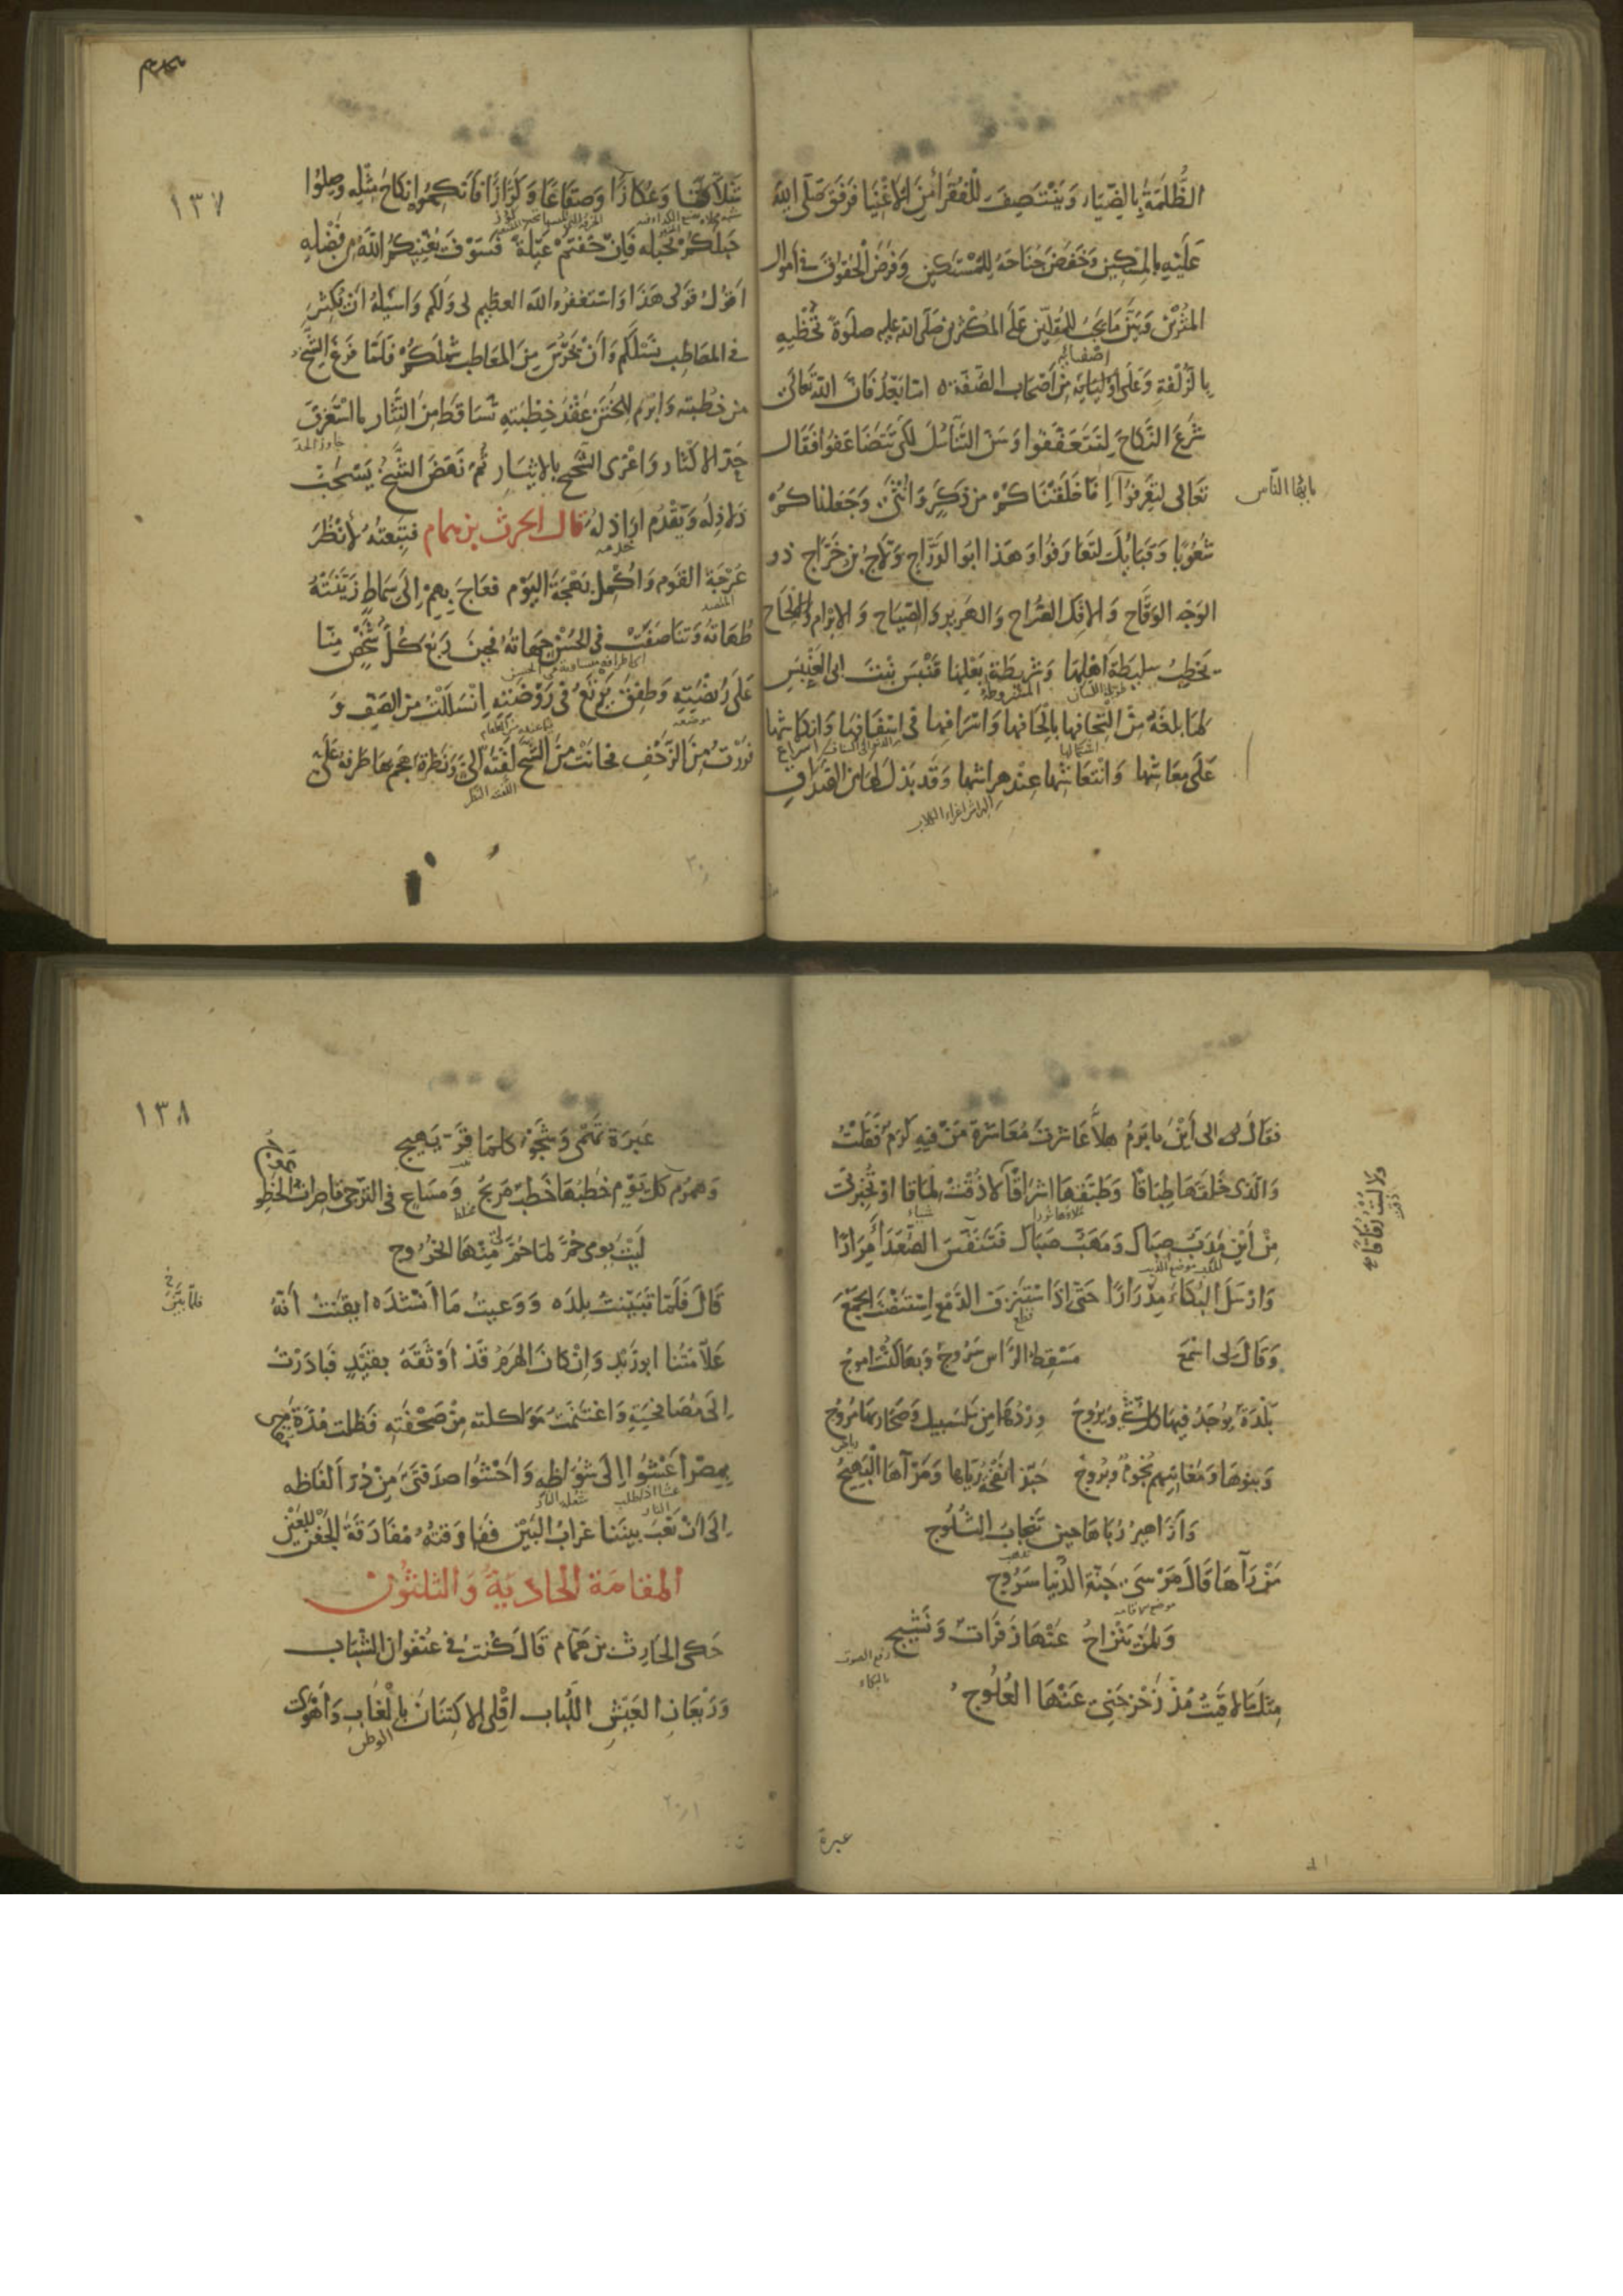 الظُّلمَةُ بالضّياء وَيَنْتَصِفَ للْفُقَرَاءِ مِنَ الاَغْنِيَا فَرَفَقَ صَلَّى اللهُ
عَلَيْهِ بالمِسْكِينِ وَخَفَضَ جَنَاحَهُ لِلمُسْتَكِينِ وَفَرَضَ الحُقُوقَ فى أموال
المُثْرِينَ وَبَيَّنَ مَا يَجِبُ للمُقِلّينَ عَلَى المُكْثِرِينَ صَلَّى الله عليه صلوةً تُحْظِيهِ
بالزُّلْفةِ وَعَلَى أوْلِيَايِه مِنْ أصْحَاب الصُّفّة ٥ امّا بَعْدُ فَانَّ اللهَ تَعَالَى
اصفيائه
شَرَعَ النّكاحَ لِتَتَعَفّفُوا وَسَنَّ التَّنَاسُلَ لكَىْ تَتَضَاعَفُوا فَقَالَ
تَعَالى لِتَعْرِفُوا إنا خَلَقْنَاكُمْ من ذَكَرٍ وَأُنْثَى وَجَعَلْناكمْ
يايها النّاس
شُعُوبًا وَقَبَايِلَ لتَعَارَفُوا وَهَذا ابَوالدَّرَّاج وَلّاجُ بن خَرَّاج ذو
الوَجْهِ الوَقَّاح وَالافْكِ الصُّرَاح وَالهَرِيرِ وَالصّيَاح وَالابْرَام وَالالحَاح
يَخطبُ سلِيطَةَ اَهْلِهَا وَشَرِيطَةَ بَعْلِهَا قَنْبَسَ بِنْتَ ابى العَنْبَسِ
طويلة اللسان المشروطة
لمَا بلغَهُ مِنْ الْتِحَافِهَا بِالْحَافِهَا وَاسْرَافِهَا فى اسْفَافِهَا وَانكمَاشِهَا
عَلَى مَعَاشِهَا وَانْتعَاشِهَا عِنْد هِرَاشِهَا وَقَد بَذَلَ لَهَا مِنَ الصَّدَاقِ
الهراش اغراء الكلاب
١٣٧
شَلّاقًا وَعُكّازًا وَصِقَاعًا وَكَرَّازًا فَانكِحُوهُ إنكاحَ مِثْلِهِ وَصِلُوا
حَبلَكُمْ بحَبله فَإنْ خفتمْ عَيْلةً فَسَوْفَ يُغْنِيكُمُ اللهُ مِن فَضْلهِ
اقُولُ قَولى هَذَا وَاسْتَغفرُ الله العظيم لى وَلَكم وَاسْئلهُ انْ يُكثِرَ
فى المصَاطِب نَسْلَكُم وَأنْ يَحْرُسَ مِنَ المَعَاطِب شَمْلَكُمْ فَلَمَّا فَرَغَ الشَّيخُ
من خُطْبَته وَابْرَم للخَتَن عَقْدَ خِطْبَتهِ تَسَاقَطَ مِنَ النّثَار مَا اسْتَغرَقَ
جاوز الحد
حَدّ الاكثَار وَاغْرَى الشَّحِيحَ بالايثَار ثُمّ نَهَضَ الشَّيْخُ يَسْحَبُ
ذَلاذِلَه وَيَقْدُم ارَاذِلَهُ قال الحرث بن همام فتَبعْتُهُ لأنْظُرَ
عَرْجَةَ القَوم وَاُكْمِلَ بَهْجَةَ اليَوْم فعَاجَ بِهِمْ إلَى سِمَاطٍ زَيَّنَتْهُ
طُهَاتُهُ وَتَنَاصَفَتْ فى الحُسْنِ جِهَاتُهُ فحِينَ رَبَعَ كُلُّ شَخْصٍ مِنَّا
عَلَى رُبْضَتِهِ وَطَفِقَ يَرْتَعُ فى رَوْضَتِه انْسَلَلْتُ مِنَ الصَّفِ وَ
موضعه
فرَرْتُ مِنَ الزّحْفِ فحَانَتْ مِنَ الشَّيْخِ لَفْتَةٌ إلىَّ وَنَظْرَةٌ هَجَمَ بهَا طَرْفهُ عَلىَّ
اللفتة النظر
فقالَ لى الى أيْنَ يا بَرَمُ هلاَّ عَاشَرتَ مُعَاشَرَةَ مَنْ فيهِ كَرَم فَقُلْتُ
وَالَّذى خَلَقَهَا طِبَاقًا وَطَبَّقَهَا اشرَاقًا لا ذُقْتُ لَمَاقًا اوْ تُخْبِرَنى
مِنْ أيْنَ مَدَبُّ صِبَاكَ وَمَهَبُّ صَبَاكَ فَتَنَفَّسَ الصُّعَدَا مِرَارًا
وَارْسَلَ البُكَاءَ مِدْرَارًا حَتّى اذَا اسْتَنْزَفَ الدّمْعَ اسْتَنْصَتَ الجَمْعَ
وَقَالَ لى اسْمَعْ مَسْقِطُ الرَّأس سَرُوجٌ وَبهَا كُنْتُ اموجُ
بَلْدَةٌ يُوجَدُ فِيهَا كُلّ شَىءٍ وَيَرُوجُ وِرْدُهَا مِن سَلْسَبيل وَصَحَارِيهَا مُرُوجُ
وَبنوهَا وَمَغانِيهم نُجُومٌ وَبُرُوجُ حَبّذا نَفْحَةُ رَيّاهَا وَمَرْآهَا البَهيجُ
وَأزَاهِيرُ رُبَاهَا حينَ تَنْجابُ الثّلُوج
مَنْ رَآهَا قَالَ مَرْسَى جَنّة الدُّنْيا سَرُوج
موضع الاقامه
وَلمَنْ يَنْزَاحُ عَنْهَا زَفَرَاتٌ وَنَشِيج
رفع الصوت
بالبكاء
مِثْلَ مَا لاقَيْتُ مُذْ زَحْزَحَنِى عَنْهَا العُلُوجُ
عبرة
١٣٨
عَبرَة تَهْمى وَشَجْوٌ كلمَا قَرّ يَهيج
وَهمُومٌ كلّ يَوْم خطْبُهَا خَطْبٌ مَرِيجُ وَمَسَاعٍ فى التّرَجّى قاصِرَاتُ الخَطْو
عوج
لَيْتَ يومى حُمَّ لمّا حُمَّ لى مِنْهَا الخُرُوج
قَالَ فَلَمّا تَبَيّنْتُ بلدَه وَوَعيتُ مَا أنْشَدَه ايقَنْتُ أنّهُ
عَلّامَتُنا ابوزَيْد وَإنْ كانَ الهرَمُ قَدْ أوْثَقَهُ بقَيْدٍ فَبَادَرْتُ
إلَى مُصَافحَتِهِ وَاغتَنَمْتُ مُوَاكلته مِنْ صَحْفَتِهِ فَظَلتُ مُدّةَ
بمصْرَ أعْشُوا إلَى شُوَاظِه وَاحْشُوا صدَفَتَىَّ مِنْ دُرَر ألفَاظه
إلَى أنْ نَعَبَ بينَنا غرَابُ البَيْنِ ففَارَقتُهُ مُفَارَقَةَ الجَفْنِ للعَيْنِ
المقامَة الحاديَةُ وَالثلثون
حَكَى الحَارِثُ بن هَمّام قَالَ كُنْتُ فى عُنْفُوان الشّبَاب
وَرَيْعَانِ العَيْشِ اللّبَاب اقْلى الاكتِنَانَ بالْغَابِ وَأهْوَى
الوطن